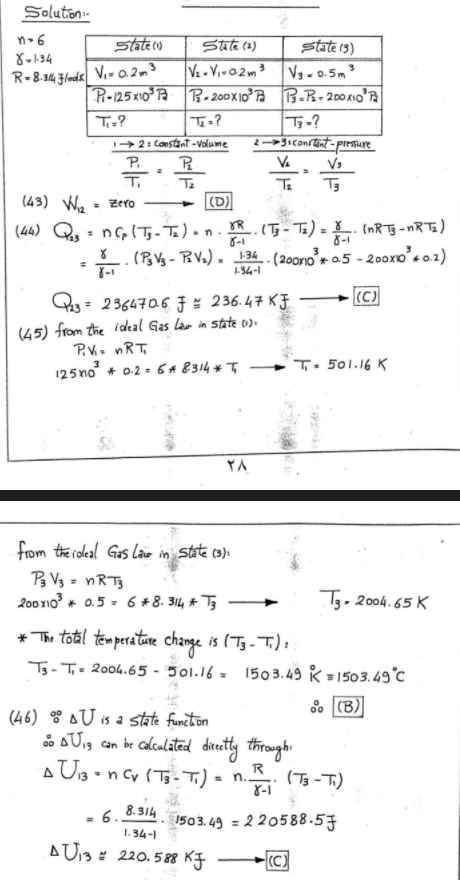 Solution:-
n=6
γ=1.34
R=8.314 J/mol.K
State(1) State(2) State(3)
V₁=0.2m³ V₂=V₁=0.2m³ V₃=0.5m³
P₁=125x10³ Pa P₂=200x10³ Pa P₃=P₂=200x10³ Pa
T₁=? T₂=? T₃=?
1→2: Constant-Volume 2→3: constant-pressure
P₁/T₁ = P₂/T₂ V₂/T₂ = V₃/T₃
(43) W₁₂ = zero → (D)
(44) Q₂₃ = n Cp (T₃-T₂) = n · γR/γ-1 · (T₃-T₂) = γ/γ-1 · (nRT₃-nRT₂)
= γ/γ-1 · (P₃V₃ - P₂V₂) = 1.34/1.34-1 · (200x10³ * 0.5 - 200x10³ * 0.2)
Q₂₃ = 236470.6 J ≅ 236.47 KJ → (C)
(45) from the ideal Gas Law in state (1):
P₁V₁ = nRT₁
125x10³ * 0.2 = 6 * 8.314 * T₁ → T₁ = 501.16 K
٢٨
from the ideal Gas Law in state (3):
P₃V₃ = nRT₃
200x10³ * 0.5 = 6 * 8.314 * T₃ → T₃ = 2004.65 K
* The total temperature change is (T₃-T₁):
T₃-T₁ = 2004.65 - 501.16 = 1503.49 °K ≡ 1503.49°C
∴ (B)
(46) ∵ ΔU is a state function
∴ ΔU₁₃ can be calculated directly through:
ΔU₁₃ = n Cv (T₃-T₁) = n · R/γ-1 · (T₃-T₁)
= 6 · 8.314/1.34-1 · 1503.49 = 220588.5 J
ΔU₁₃ ≅ 220.588 KJ → (C)